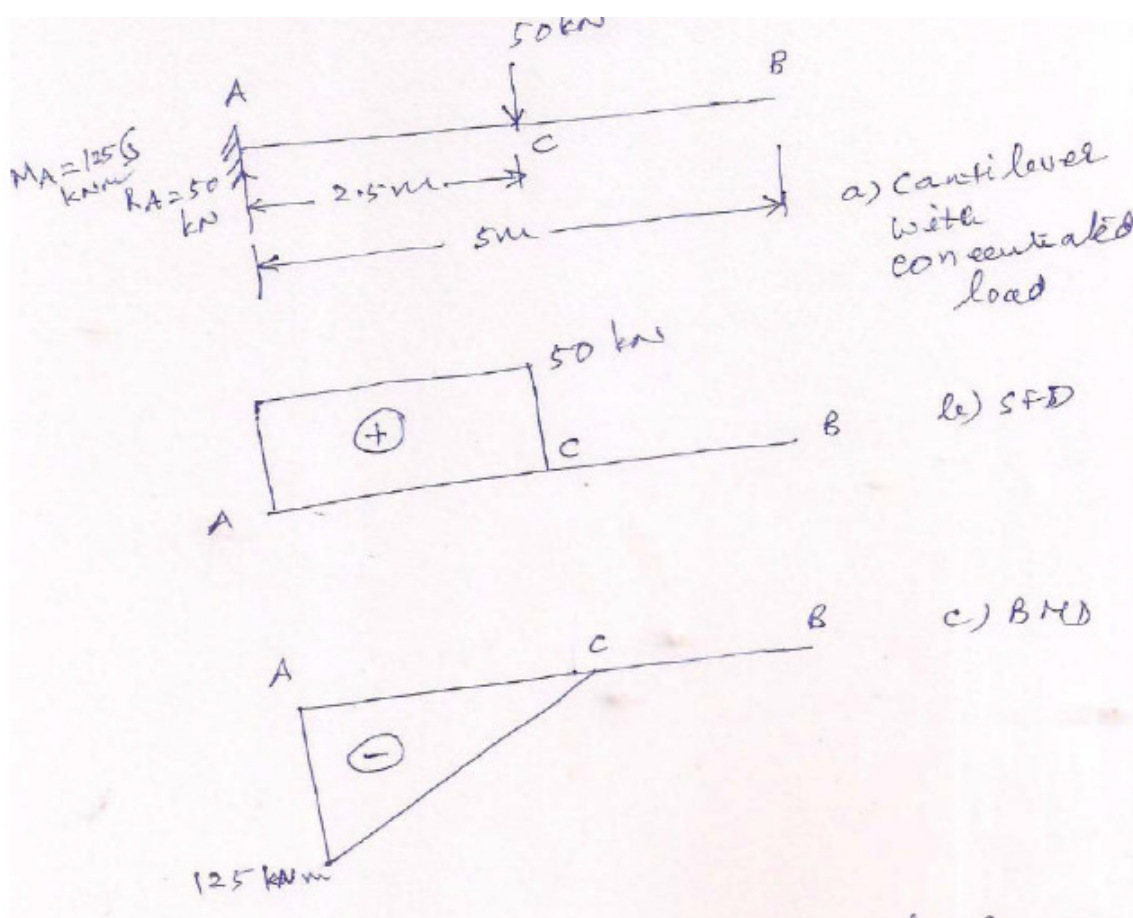 50kN
A
B
C
MA=125
kNm
RA=50
kN
2.5m
5m
a) Cantilever
with
concentrated
load
50 kN
+
C
B
A
b) SFD
A
C
B
-
125 kNm
c) BMD